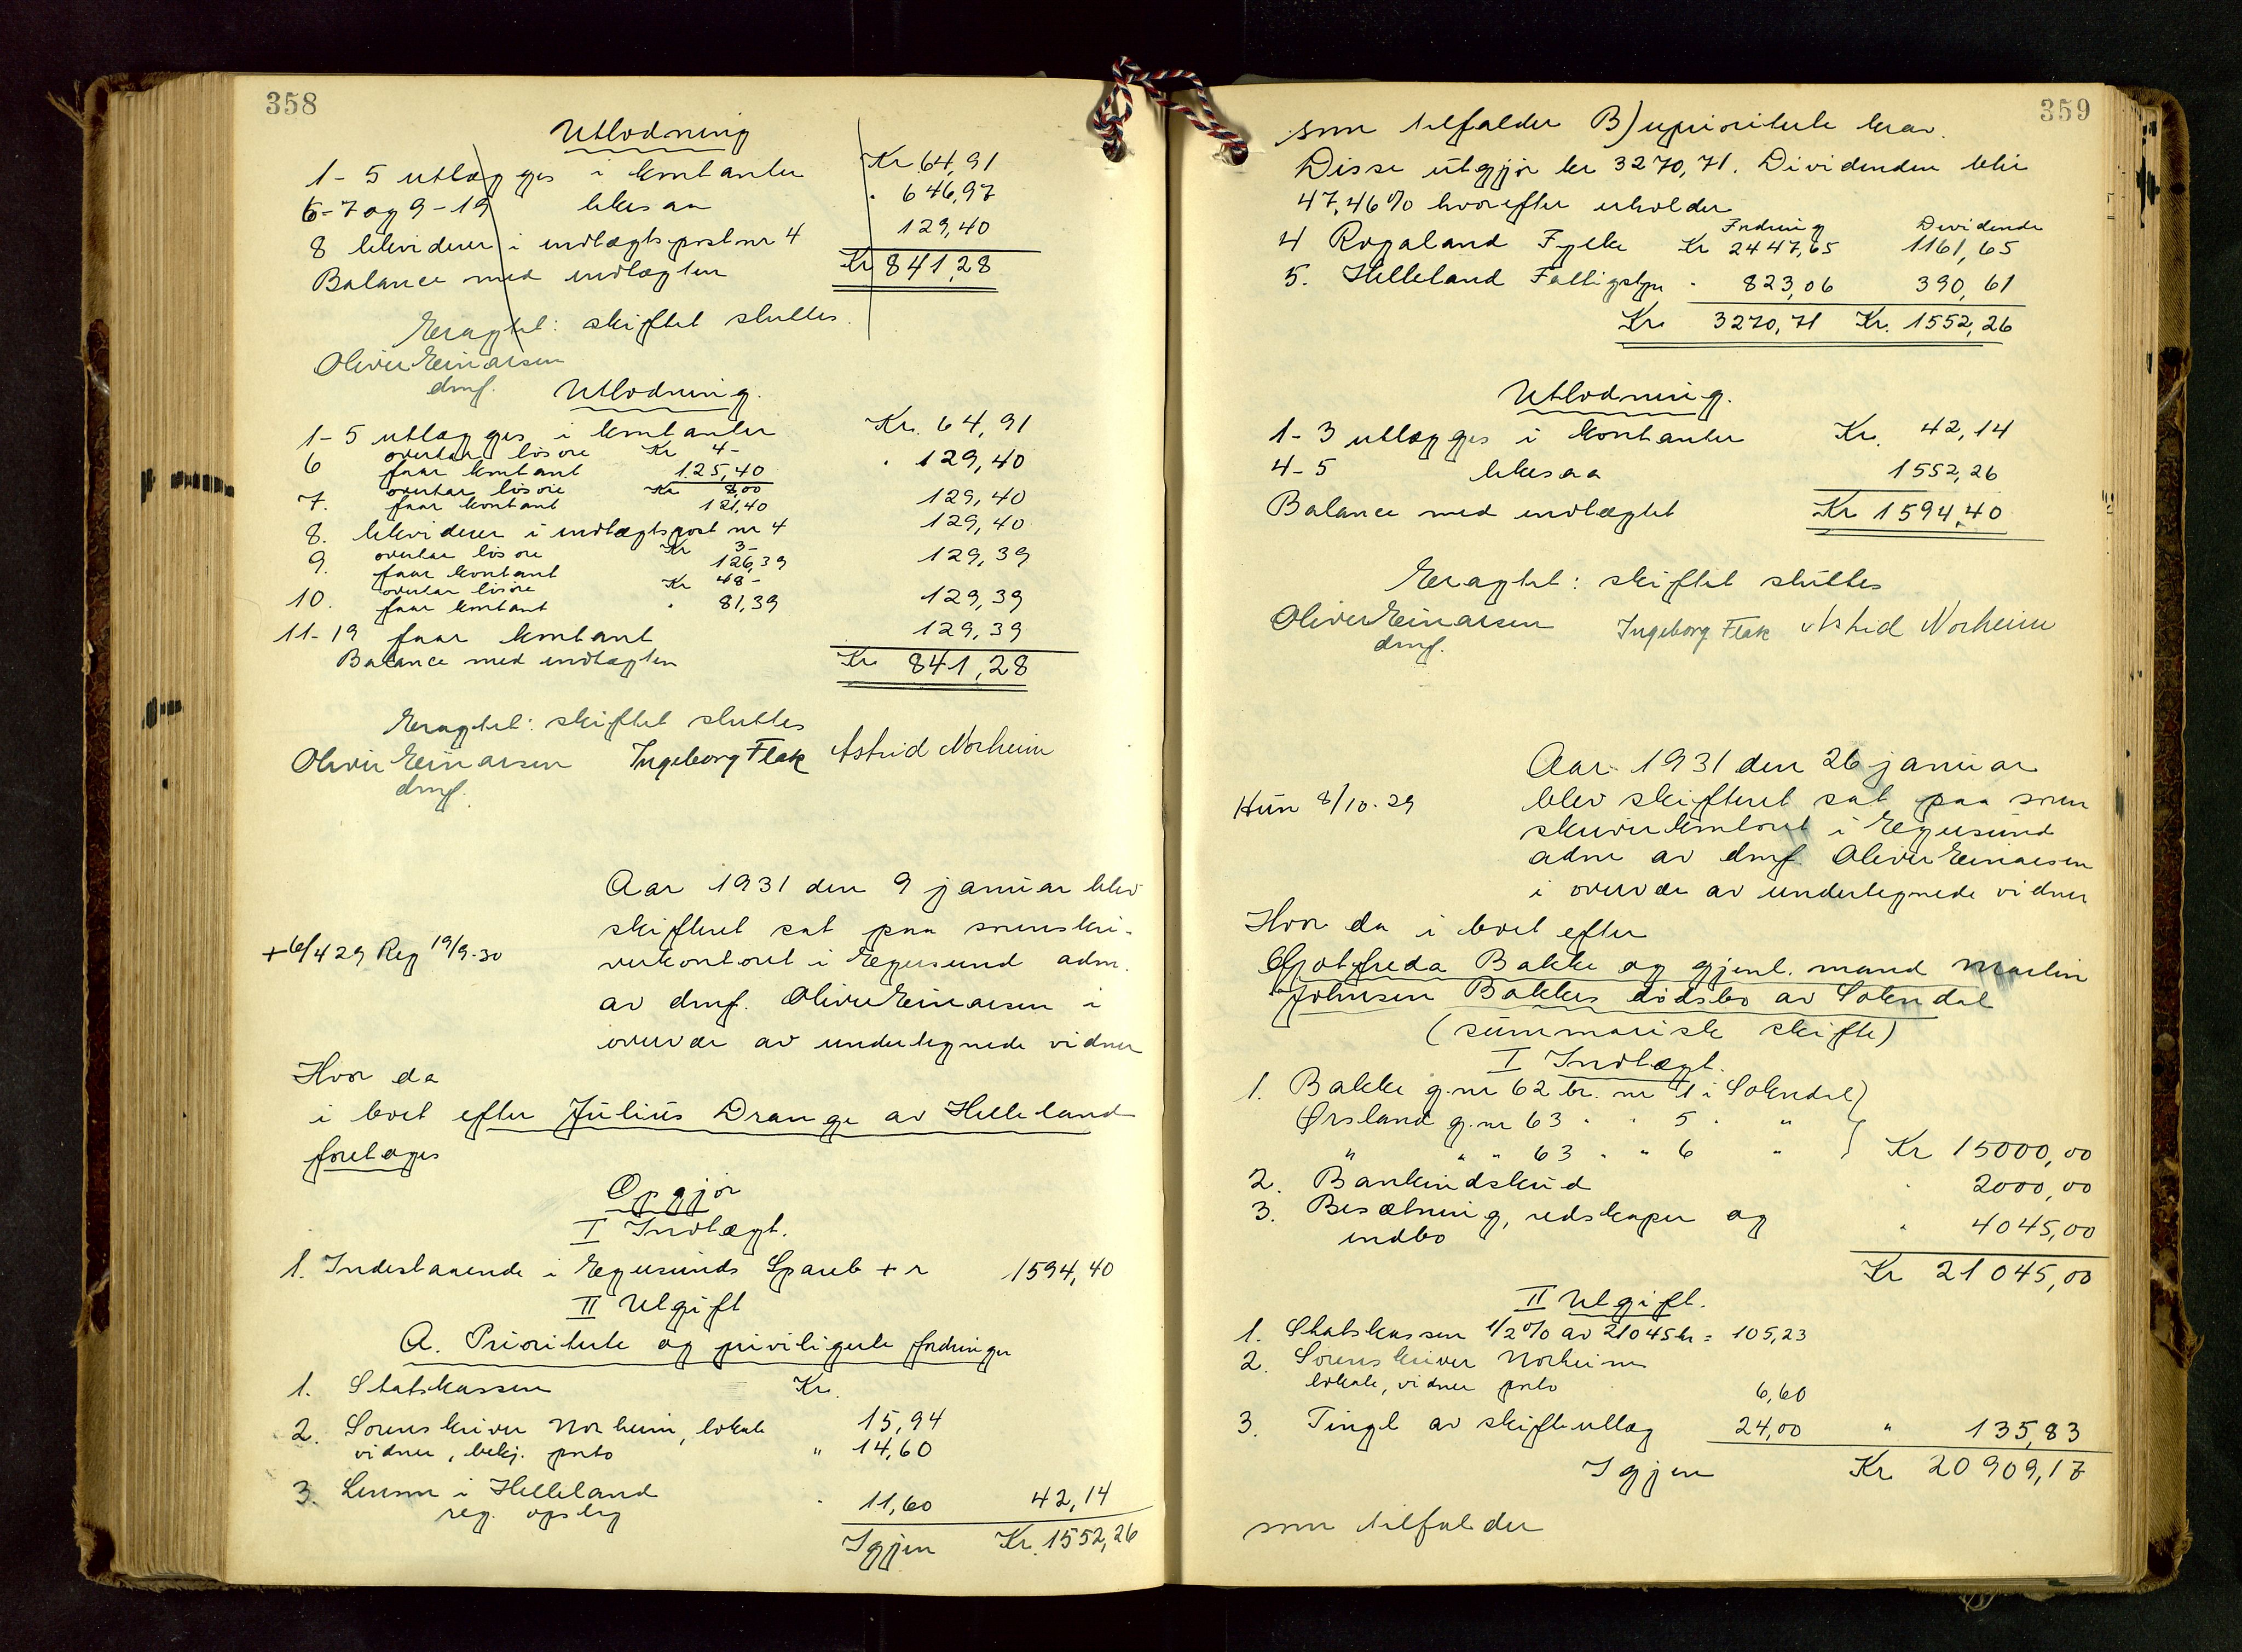 358
Utlodning
1-5 utlægges i kontanter Kr. 64,91
6-7 og 9-19 likesaa " 646,97
8 likviderer i indtægtspost nr 4 129,40
Balance med indtægten Kr 841,28
Eragtet: skiftet sluttes.
Oliver Einarsen
dmf.
Utlodning.
1-5 utlægges i kontanter Kr. 64,91
6 overtar løsøre Kr 4-
faar kontant 125,40 " 129,40
7. overtar løsøre Kr 8,00
faar kontant 121,40 129,40
8. likviderer i indtægtspost nr 4 129,40
9. overtar løsøre Kr 3-
faar kontant 126,39 129,39
10. overtar løsøre Kr 48-
faar kontant " 81,39 129,39
11-19 faar kontant 129,39
Balance med indtægten Kr 841,28
Eragtet: skiftet sluttes
Oliver Einarsen Ingeborg Flak Astrid Norheim
dmf.
Aar 1931 den 9 januar blev
skifteret sat paa sorenskri-
verkontoret i Egersund adm.
+ 6/4 29 Reg 19/9-30
av dmf. Oliver Einarsen i
overvær av undertegnede vidner
Hvor da
i boet efter Julius Drange av Helleland
foretoges
Opgjør
I Indtægt.
1. Indestaaende i Egersunds Spareb + r 1594,40
II Utgift
A. Prioriterte og priviligerte fordringer
1. Statskassen Kr. 15,94
2. Sorenskriver Norheim, lokale
vidner, bekj. porto " 14,60
3. Lensm i Helleland
reg. opslag " 11,60 42,14
Igjen Kr. 1552,26
359
som tilfalder B) uprioriterte krav.
Disse utgjør kr 3270,71. Dividenden blir
47,46% hvorefter erholder
Fordring Dividende
4 Rogaland Fylke Kr 2447,65 1161,65
5. Helleland Fattigstyre " 823,06 390,61
Kr 3270,71 Kr. 1552,26
Utlodning.
1-3 utlægges i kontanter Kr. 42,14
4-5 likesaa 1552,26
Balance med indtægtet Kr 1594,40
Eragtet: skiftet sluttes
Oliver Einarsen Ingeborg Flak Astrid Norheim
dmf.
Aar 1931 den 26 januar
Hun 8/10-29
blev skifteret sat paa soren
skriverkontoret i Egersund
adm av dmf Oliver Einarsen
i overvær av undertegnede vidner
Hvor da i boet efter
Gjotfreda Bakke og gjenl. mand Martin
Johnsen Bakkes dødsbo av Sokndal
(summarisk skifte)
I Indtægt.
1. Bakke g.nr 62 br. nr 1 i Sokndal
Ørsland g.nr 63 " " 5 " "
" " " 63 " " 6 " Kr 15000,00
2. Bankindskud " 2000,00
3. Besætning, redskaper og
indbo " 4045,00
Kr 21045,00
II Utgift.
1. Statskassen 1/2% av 21045 kr = 105,23
2. Sorenskriver Norheim
lokale, vidner porto 6,60
3. Tingl av skifteutlæg 24,00 " 135,83
Igjen Kr 20909,17
som tilfalder